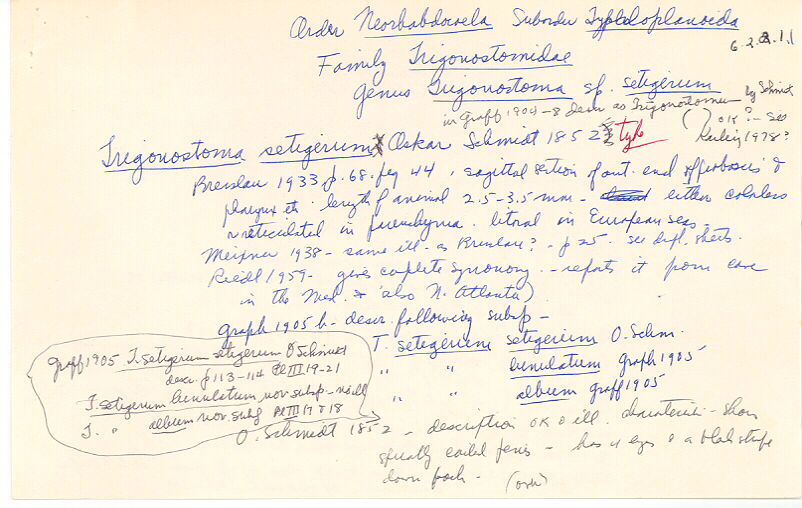 Order Neorhabdocoela Suborder Typhloplanoida
6.2.2.1.1
Family Trigonostomidae
Genus Trigonostoma sp. setigerum
in Graff 1904-8 descr as Trigonostomum by Schmidt
( ) OK? - See
Karling 1978?
Trigonostoma setigerum Oskar Schmidt 1852 type
Breslau 1933 p. 68. fig 44, sagittal section of ant. end
pharynx etc. length of animal 2.5-3.5 mm - either colorless
or reticulated in parenchyma. litoral in European seas -
Meixner 1938 - same ill. as Breslau? - p 25. see dupl. sheets.
Riedl 1959 - gives complete synonomy. - reports it from cave
in the Med. & also N. Atlantic)
graph 1905 b - descr. following subsp -
T. setigerum setigerum O. Schm.
" " lunulatum graph 1905
" " album graff 1905
Graff 1905 T. setigerum setigerum O Schmidt
descr. p 113-114 Pl III 19-21
T. setigerum lunulatum nov subsp - no ill
T. " album nov. subsp Pl III 17 & 18
O. Schmidt 1852 - description OK & ill. characteristic - show
spirally coiled penis - has 4 eyes & a black stripe
down back -